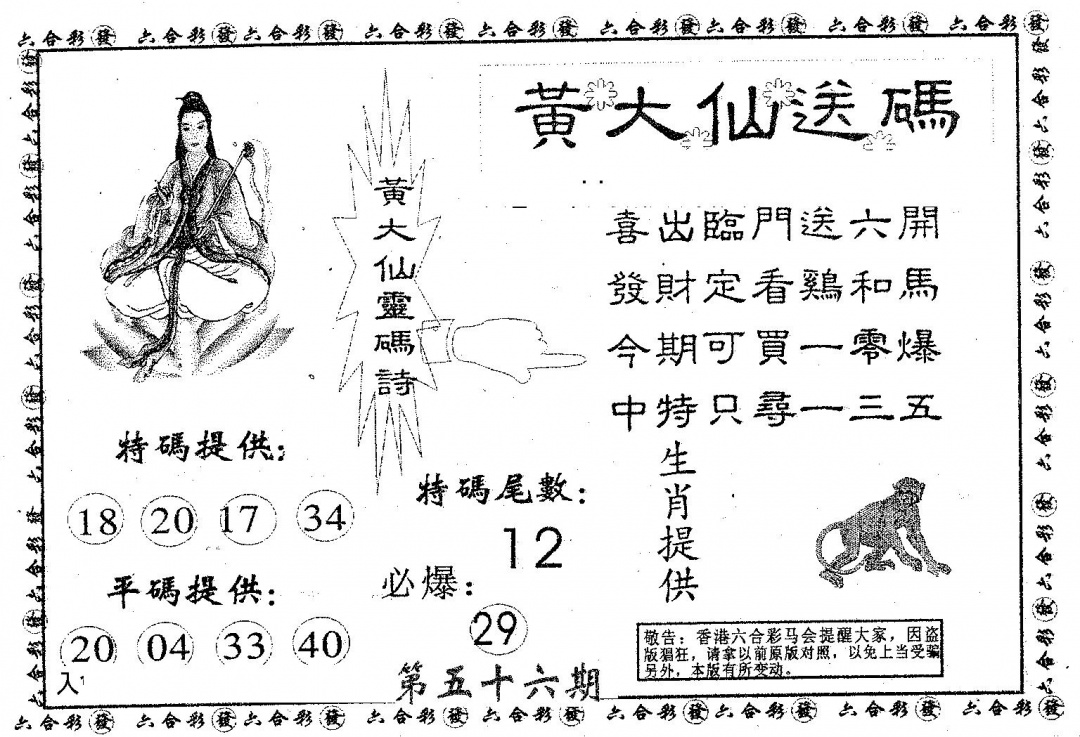 六合彩發 六合彩發六合彩發 六合彩發 六合彩發 六合彩發六合彩發 六合彩發 六合彩發
黃大仙送碼
黃大仙靈碼詩
喜出臨門送六開
發財定看鷄和馬
今期可買一零爆
中特只尋一三五
特碼提供：
18 20 17 34
平碼提供：
20 04 33 40
入1
特碼尾數：
12
必爆：
29
第五十六期
生肖提供
敬告：香港六合彩马会提醒大家，因盗
版猖狂，请拿以前原版对照，以免上当受骗
另外，本版有所变动。
六合彩發 六合彩發六合彩發 六合彩發 六合彩發 六合彩發六合彩發 六合彩發 六合彩發